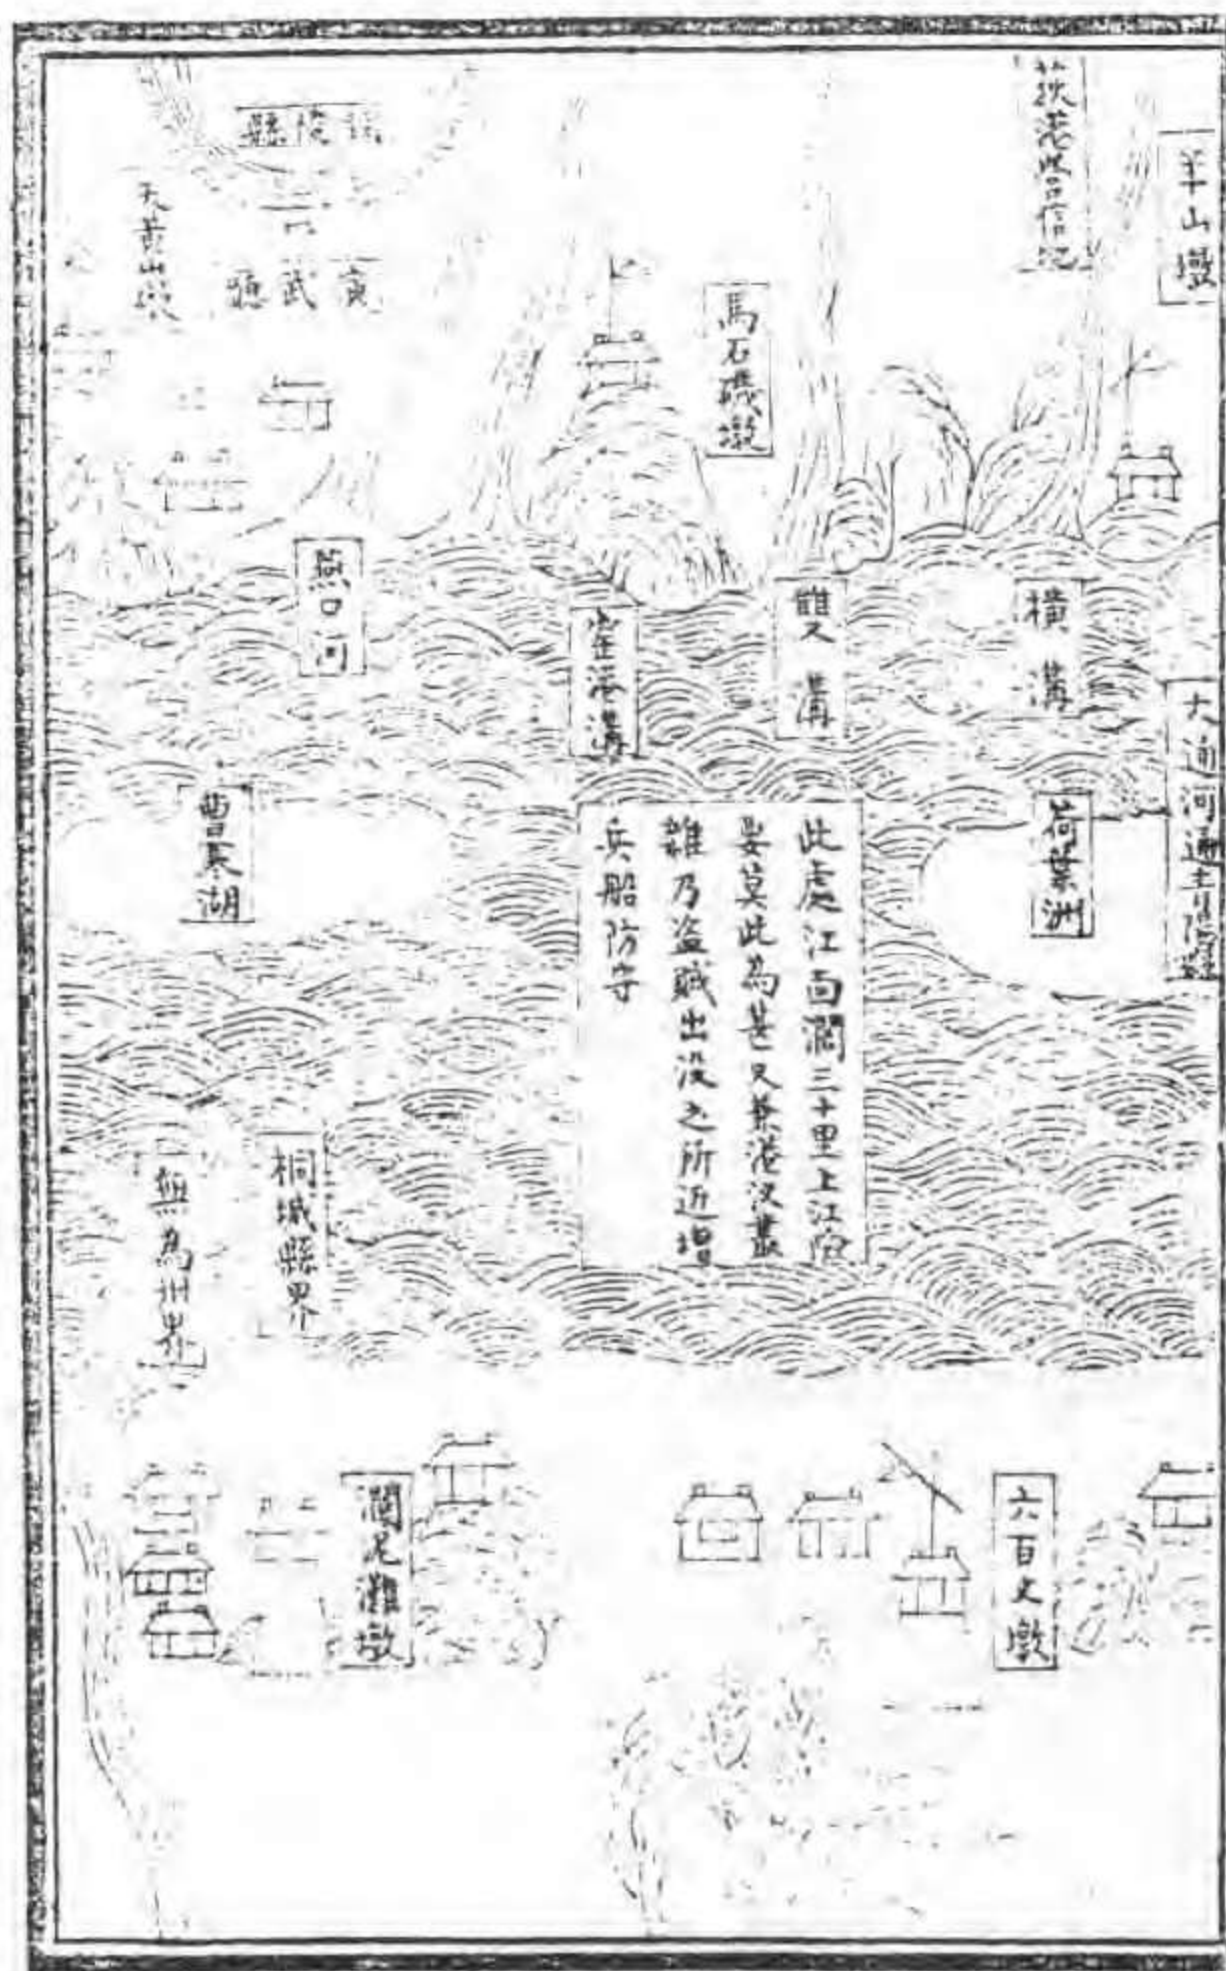 羊山墩
荻港營信地
馬石磯墩
陵縣
武廳
天黃山墩
橫溝
雙溝
港溝
燕口河
大通河通青陽縣
荷葉洲
此處江面濶三十里上江險
要莫此為甚又兼港汊叢
雜乃盜賊出没之所近增
兵船防守
湖
桐城縣界
無為州界
六百丈墩
濶尼灘墩